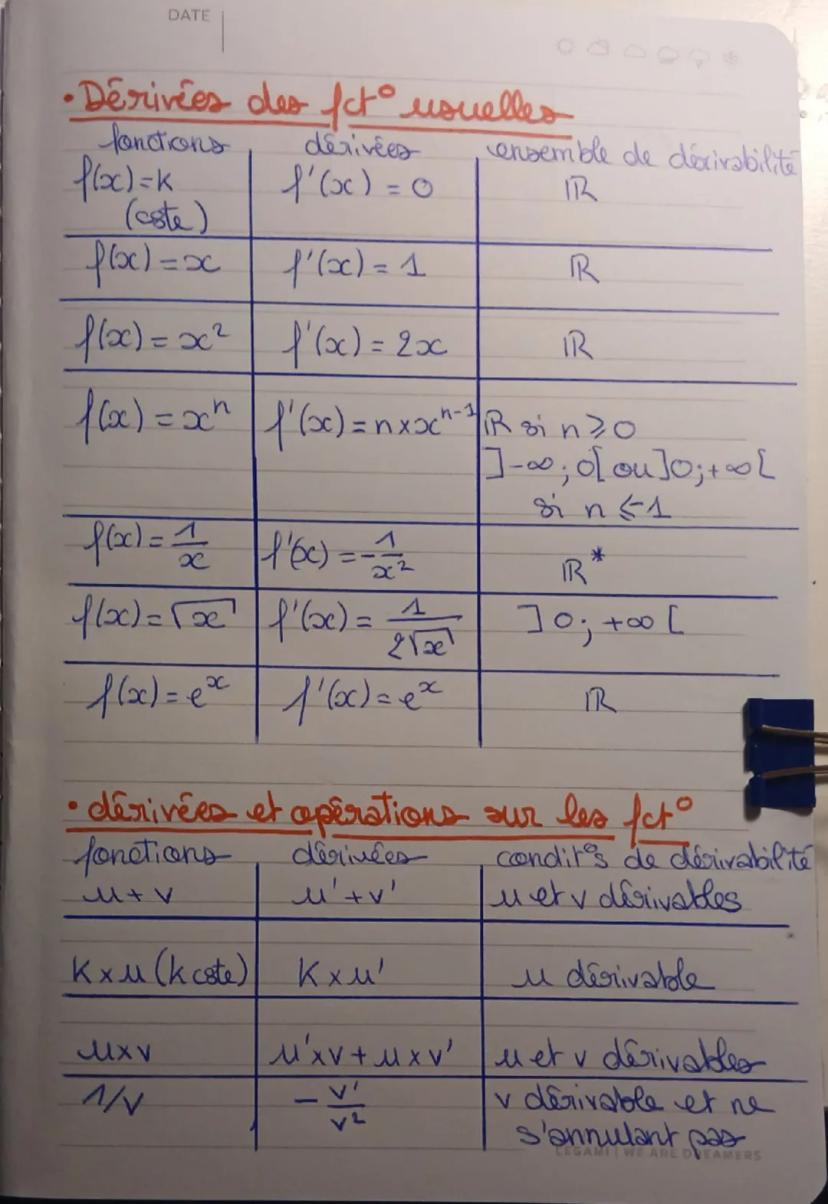 DATE
• Dérivées des fct° usuelles
fonctions dérivées ensemble de dérivabilité
f(x)=k f'(x) = 0 ℝ
(cste)
f(x) = x f'(x) = 1 ℝ
f(x) = x² f'(x) = 2x ℝ
f(x) = xⁿ f'(x) = n×xⁿ⁻¹ ℝ si n ⩾ 0
]-∞; 0[ ou ]0; +∞[
si n ⩽ -1
f(x) = 1/x f'(x) = -1/x² ℝ*
f(x) = √x f'(x) = 1/(2√x) ]0; +∞[
f(x) = eˣ f'(x) = eˣ ℝ
• dérivées et opérations sur les fct°
fonctions dérivées condit°s de dérivabilité
u + v u' + v' u et v dérivables
K × u (k cste) K × u' u dérivable
u×v u'×v + u × v' u et v dérivables
1/v - v'/v² v dérivable et ne
s'annulant pas
LEGAMI | WE ARE DREAMERS